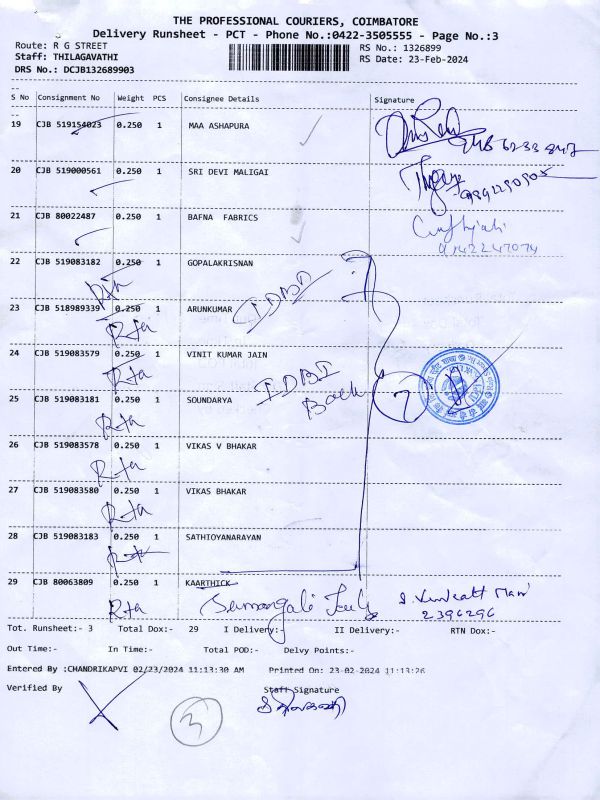 THE PROFESSIONAL COURIERS, COIMBATORE
Delivery Runsheet - PCT - Phone No.:0422-3505555 - Page No.:3
Route: R G STREET RS No.: 1326899
Staff: THILAGAVATHI RS Date: 23-Feb-2024
DRS No.: DCJB132689903
S No Consignment No Weight PCS Consignee Details Signature
19 CJB 519154023 0.250 1 MAA ASHAPURA
20 CJB 519000561 0.250 1 SRI DEVI MALIGAI
21 CJB 80022487 0.250 1 BAFNA FABRICS
9142247074
22 CJB 519083182 0.250 1 GOPALAKRISNAN
Rta
23 CJB 518989339 0.250 1 ARUNKUMAR IDBI
Rta
24 CJB 519083579 0.250 1 VINIT KUMAR JAIN
Rta IDBI
25 CJB 519083181 0.250 1 SOUNDARYA Bank 7
Rta
26 CJB 519083578 0.250 1 VIKAS V BHAKAR
Rta
27 CJB 519083580 0.250 1 VIKAS BHAKAR
Rta
28 CJB 519083183 0.250 1 SATHIOYANARAYAN
Rta
29 CJB 80063809 0.250 1 KAARTHICK
Rta 2396296
Tot. Runsheet:- 3 Total Dox:- 29 I Delivery:- II Delivery:- RTN Dox:-
Out Time:- In Time:- Total POD:- Delvy Points:-
Entered By :CHANDRIKAPVI 02/23/2024 11:13:30 AM Printed On: 23-02-2024 11:13:26
Verified By Staff Signature
3